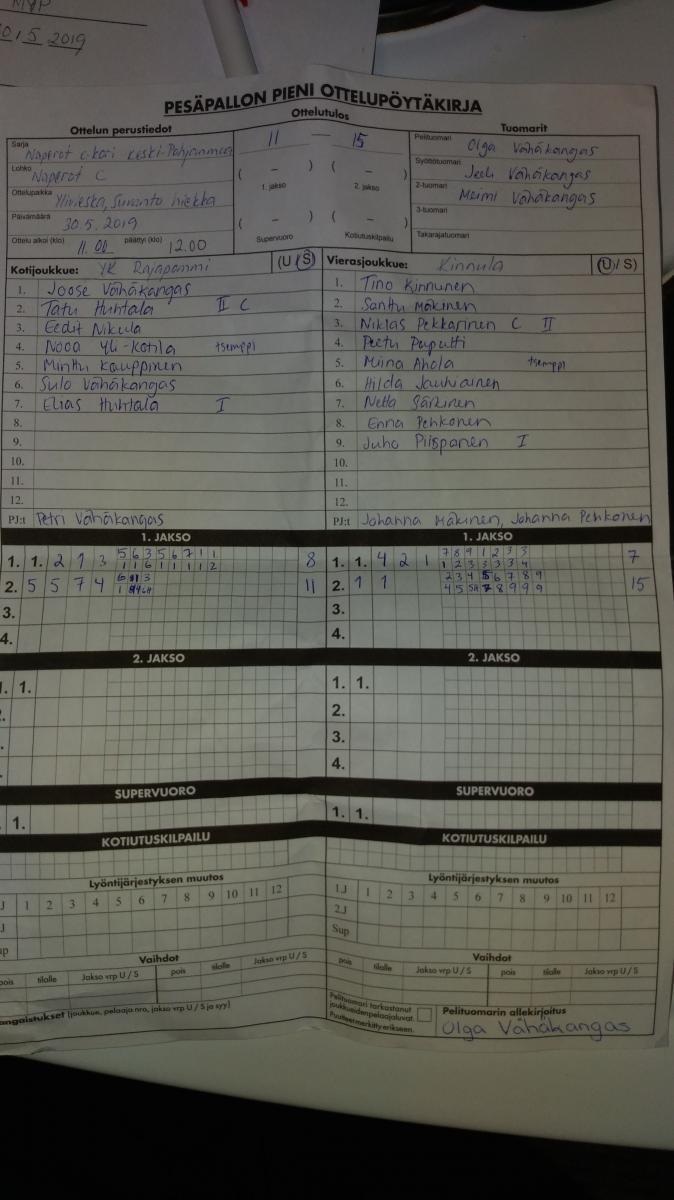 MVP
5 2019
PESÄPALLON PIENI OTTELUPÖYTÄKIRJA
Ottelun perustiedot
Ottelutulos
Tuomarit
Sarja
Naperot c-kori Keski-Pohjanmaa
11 — 15
Pelituomari
Olga Vähäkangas
Lohko
Naperot C
( – ) ( – )
Syöttötuomari
Vähäkangas
Ottelupaikka
Ylivieska, Suvanto hiekka
1. jakso 2. jakso
2-tuomari
Meimi Vähäkangas
Päivämäärä
30.5.2019
( – ) ( – )
3-tuomari
Ottelu alkoi (klo) 11.00 päättyi (klo) 12.00
Supervuoro Kotiutuskilpailu
Takarajatuomari
Kotijoukkue: YK Rajapammi (U / S)
Vierasjoukkue: Kinnula (U / S)
1. Joose Vähäkangas
1. Tino Kinnunen
2. Tatu Huhtala II C
2. Santtu Mäkinen
3. Eedit Nikula
3. Niklas Pekkarinen C II
4. Nooa Yli-Kotila tsemppi
4. Peetu Paputti
5. Minttu Kauppinen
5. Miina Ahola tsemppi
6. Sulo Vähäkangas
6. Hilda Jauhiainen
7. Elias Huhtala I
7. Netta Särkinen
8.
8. Enna Penkonen
9.
9. Juho Piispanen I
10.
10.
11.
11.
12.
12.
PJ:t Petri Vähäkangas
PJ:t Johanna Mäkinen, Johanna Penkonen
1. JAKSO
1. JAKSO
5 6 3 5 6 7 1 1
7 8 9 1 2 3 3
1. 1. 2 1 3 1 1 6 1 1 1 1 2 8
1. 1. 4 2 1 1 2 3 3 3 3 4 7
2. 5 5 7 4 11
2 3 4 5 6 7 8 9
2. 1 1 4 5 7 8 9 9 9 15
3.
3.
4.
4.
2. JAKSO
2. JAKSO
1. 1.
1. 1.
2.
3.
4.
SUPERVUORO
SUPERVUORO
1.
1. 1.
KOTIUTUSKILPAILU
KOTIUTUSKILPAILU
Lyöntijärjestyksen muutos
Lyöntijärjestyksen muutos
J 1 2 3 4 5 6 7 8 9 10 11 12
1.J 1 2 3 4 5 6 7 8 9 10 11 12
J
2.J
up
Sup
Vaihdot
Vaihdot
pois tilalle Jakso vrp U / S pois tilalle Jakso vrp U / S
pois tilalle Jakso vrp U / S pois tilalle Jakso vrp U / S
angaistukset (joukkue, pelaaja nro, jakso vrp U / S ja syy)
Pelituomari tarkastanut
joukkueidenpelaajaluvat.
Puutteet merkitty erikseen.
Pelituomarin allekirjoitus
Olga Vähäkangas